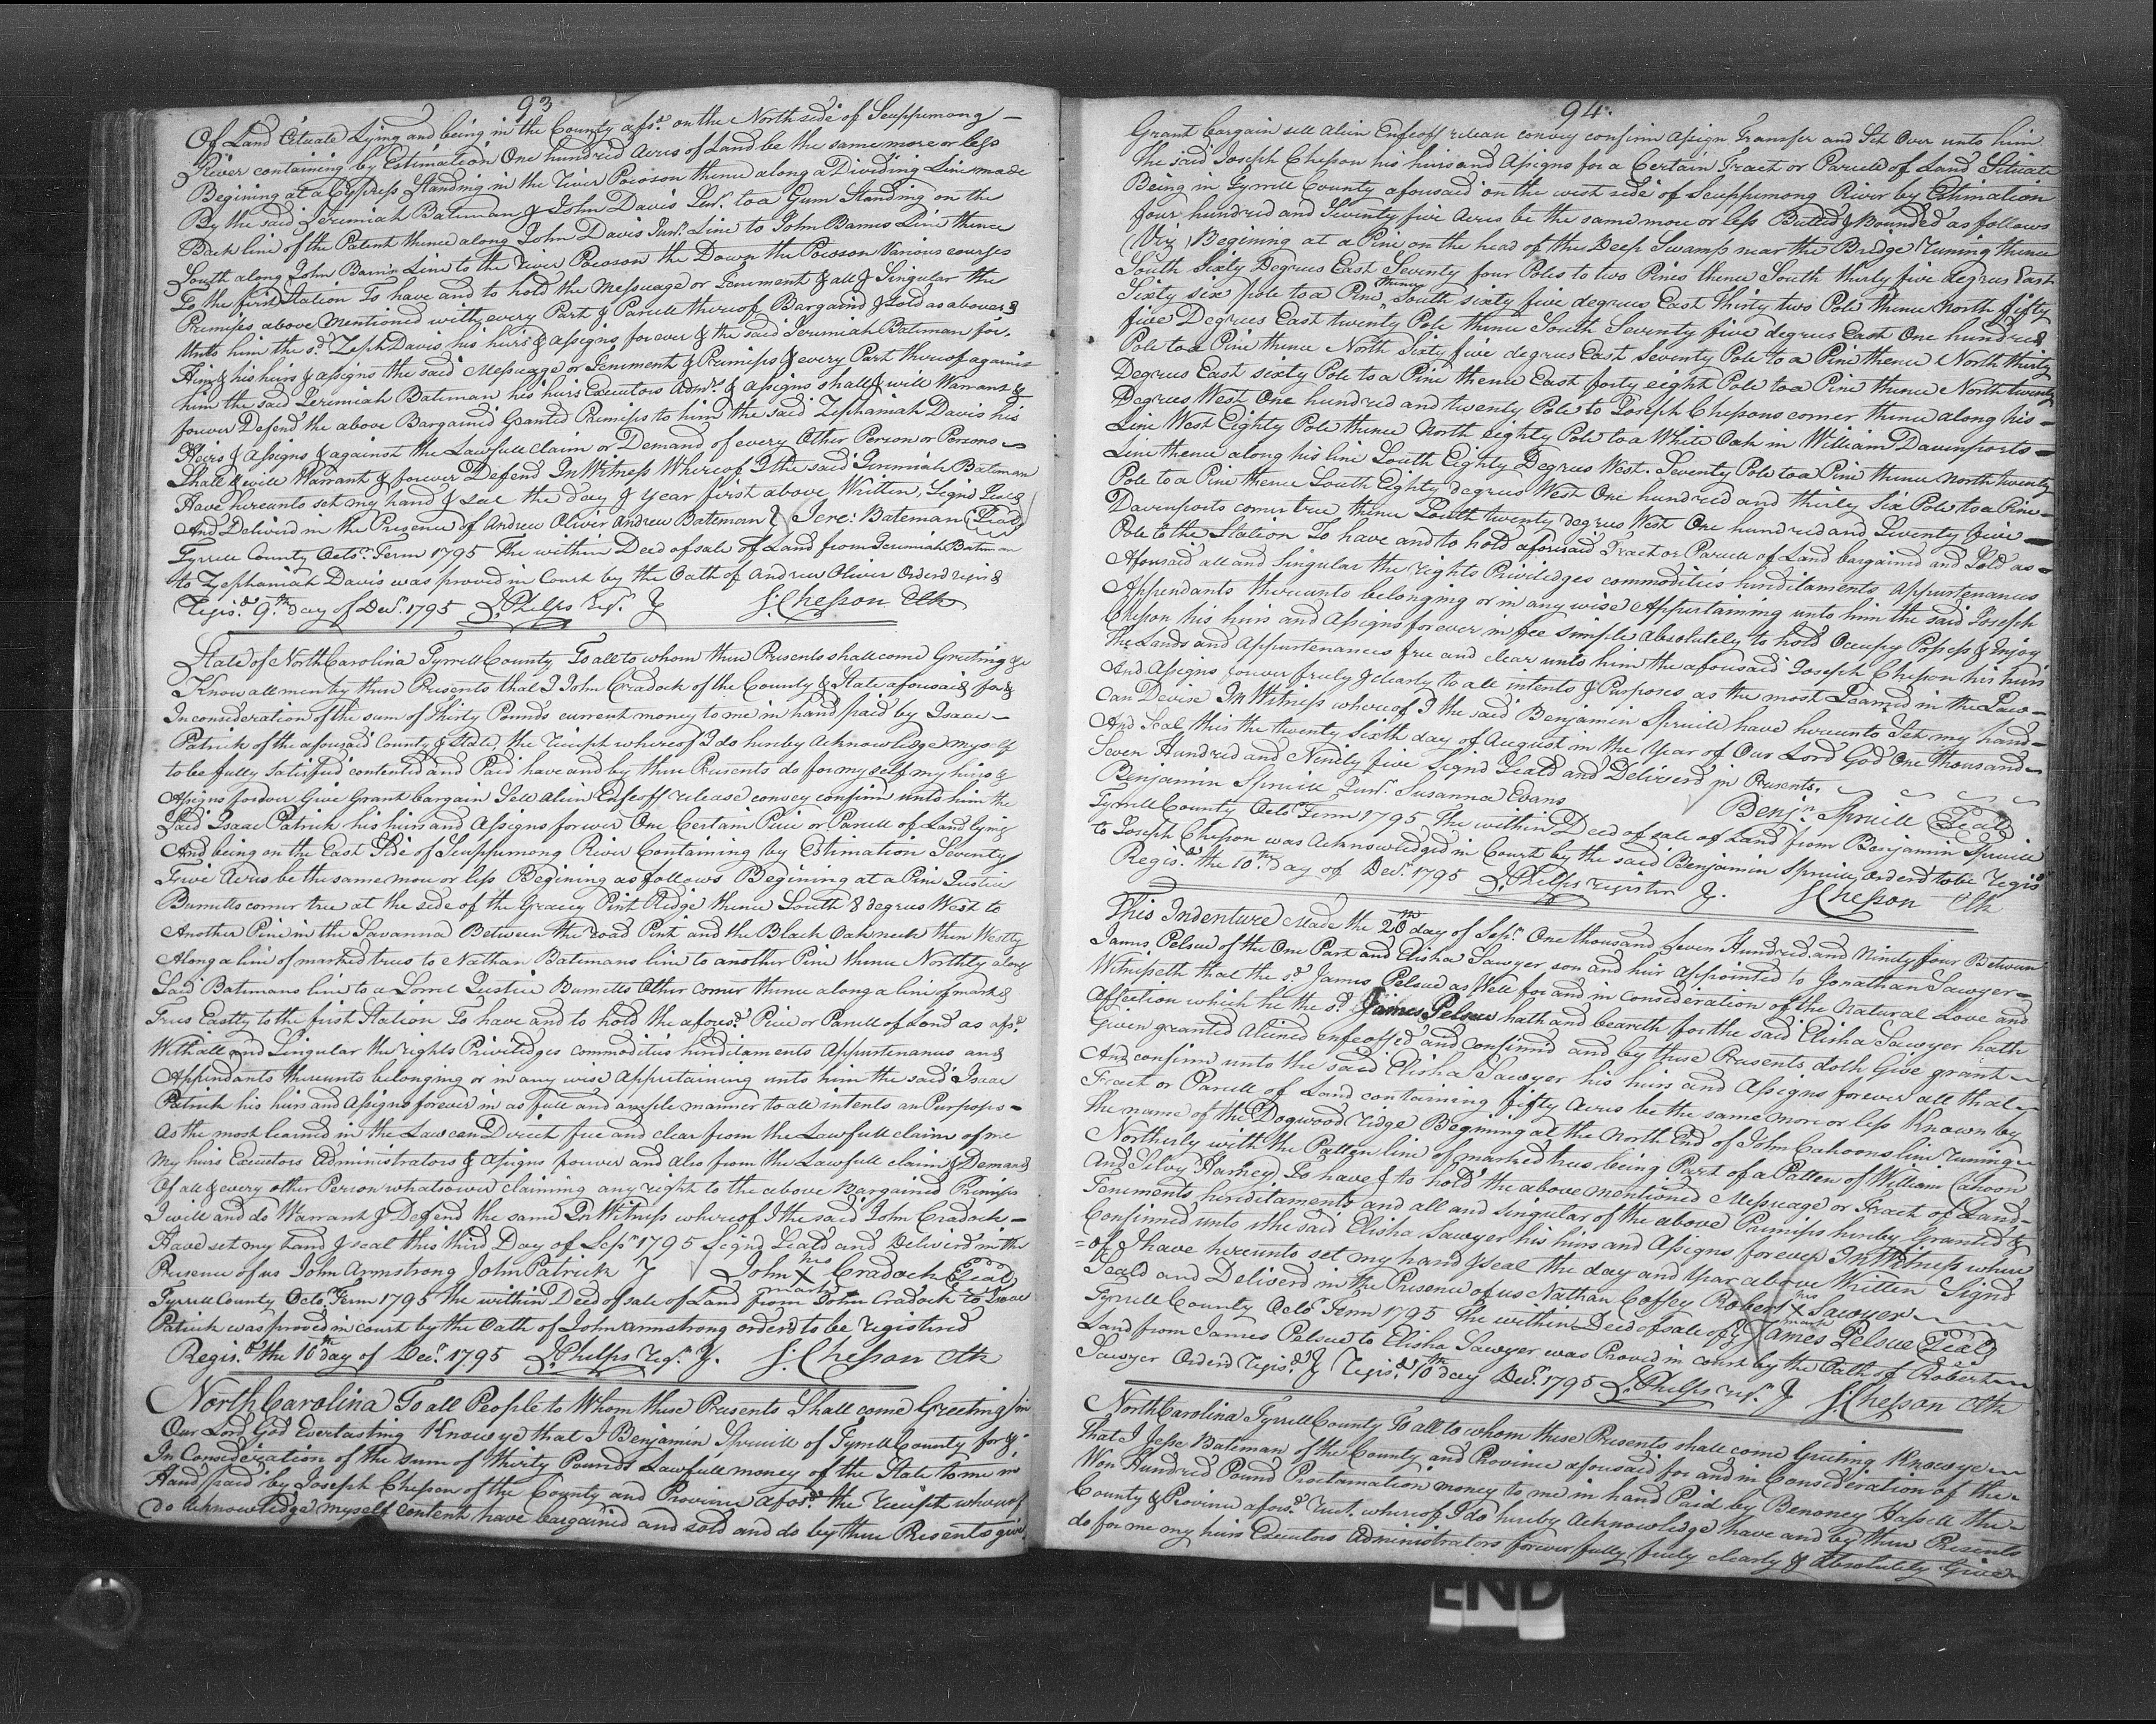 93
Of Land Cituate Lying and being in the County afsd. on the North side of Scuppernong
River containing by Estimation One hundred Acres of Land be the same more or less
Begining at a Cypress Standing in the River Pocoson thence along a Dividing Line made
By the said Jeremiah Bateman & John Davis Junr. to a Gum Standing on the
Back line of the Patent thence along John Davis Junr. Line to John Barnes Line thence
South along John Barns Line to the River Pocoson the Down the Pocoson Various courses
To the first Station To have and to hold the Messuage or Teniment & all & Singular the
Premises above Mentioned with every Part & Parcell thereof Bargaind & Sold as above
Unto him the sd. Zeph Davis his heirs & assigns forever & the said Jeremiah Bateman for
Him & his heirs & assigns the said Messuage or Teniment & Premises & every Part thereof against
him the said Jeremiah Bateman his heirs Executors Admrs. & assigns shall & will Warrant &
forever Defend the above Bargained Granted Premises to him the said Zephaniah Davis his
Heirs & Assigns & against the Lawfull Claim or Demand of every Other Person or Persons
Shall & will Warrant & forever Defend In Witness Whereof I the said Jeremiah Bateman
Have hereunto set my hand & seal the day & year first above Written, Signd Seald
And Deliverd in the Presence of Andrew Oliver Andrew Bateman } Jere: Bateman (Seal)
Tyrrell County Octor. Term 1795 The within Deed of sale of Land from Jeremiah Bateman
to Zephaniah Davis was proved in Court by the Oath of Andrew Oliver Orderd regisd
Regisd. 9th. day of Decr. 1795 J. Phelps Regr. } J. Chesson Clk
State of North Carolina Tyrrell County To all to whom these Presents shall come Greeting &c
Know all men by these Presents that I John Cradock of the County & State aforesaid for &
In consideration of the sum of Thirty Pounds current money to me in hand paid by Isaac
Patrick of the aforesaid County & State, the receipt whereof I do hereby Acknowledge myself
to be fully Satisfied contented and Paid have and by these Presents do for my self my heirs &
Assigns forever Give Grant bargain Sell Alien Enfeoff release convey confirm unto him the
Said Isaac Patrick his heirs and Assigns forever One Certain Piece or Parcell of Land lying
And being on the East Side of Scuppernong River Containing by Estimation Seventy
Five Acres be the same more or less Begining as follows Begining at a Pine Justice
Burnetts corner tree at the side of the Gracey Pint Ridge thence South 8 degrees West to
Another Pine in the Savanna Between the road Pint and the Black Oak neck then Westly
Along a line of marked trees to Nathan Batemans line to another Pine thence Northly along
Said Batemans line to a Lorrel Justice Burnetts Other corner thence along a line of markd
Trees Eastly to the first Station To have and to hold the aforesd. Piece or Parcell of Land as afsd.
With all and Singular the rights Priviledges commodities heriditaments Appurtenances and
Appendants thereunto belonging or in any wise Appertaining unto him the said Isaac
Patrick his heirs and Assigns forever in as full and ample manner to all intents an Purposes
As the most learned in the Law can Direct free and clear from the Lawfull claim of me
My heirs Executors Administrators & Assigns forever and also from the Lawfull claim & Demand
Of all & every other Person whatsoever claiming any right to the above Bargained Primises
I will and do Warrant & Defend the same In Witness whereof I the said John Cradock
Have set my hand & seal this third Day of Sepr. 1795 Signd Seald and Deliverd in the
Presence of us John Armstrong John Patrick } John his X mark Cradock (Seal)
Tyrrell County Octo. Term 1795 the within Deed of sale of Land from John Cradock to Isaac
Patrick was proved in court by the Oath of John Armstrong orderd to be registered
Regisd. the 10th day of Decr. 1795 J. Phelps Regr. } J. Chesson Clk
North Carolina To all People to Whom these Presents Shall come Greeting in
Our Lord God Everlasting Know ye that I Benjamin Spruill of Tyrrell County for &
In Consideration of the sum of thirty Pounds Lawfull money of the State to me in
Hand paid by Joseph Chesson of the County and Province aforesd. the receipt whereof
do acknowledge myself content have bargained and sold and do by these Presents give
94.
Grant bargain sell alien Enfeoff release convey confirm assign Transfer and Set Over unto him
The said Joseph Chesson his heirs and Assigns for a Certain Tract or Parcell of Land Situate
Being in Tyrrell County aforesaid on the west side of Scuppernong River by Estimation
four hundred and Seventy five Acres be the same more or less Butted & Bounded as follows
(Viz) Begining at a Pine on the head of the Deep Swamp near the Bridge runing thence
South Sixty Degrees East Seventy four Poles to two Pines thence South thirty five degrees East
Sixty six pole to a Pine thence South sixty five degrees East Thirty two Pole thence North fifty
five Degrees East twenty Pole thence South Seventy five degrees East One hundred
Pole to a Pine thence North Sixty five degrees East Seventy Pole to a Pine thence North thirty
Degrees East sixty Pole to a Pine thence East forty eight Pole to a Pine thence North twenty
Degrees West One hundred and twenty Pole to Joseph Chessons corner thence along his
Line West Eighty Pole thence North eighty Pole to a White Oak in William Davenports
Line thence along his line South Eighty Degrees West. Seventy Pole to a Pine thence North twenty
Pole to a Pine thence South Eighty degrees West One hundred and thirty Six Pole to a Pine
Davenports corner tree thence South twenty degrees West One hundred and Seventy five
Pole to the Station To have and to hold aforesaid Tract or Parcell of Land bargained and Sold as
Aforesaid all and Singular the rights Priviledges commodities heriditaments Appurtenances
Appendants thereunto belonging or in any wise Appurtaining unto him the said Joseph
Chesson his heirs and Assigns forever in fee simple absolutely to hold Occupy Possess & Injoy
The Lands and Appurtenances free and clear unto him the aforesaid Joseph Chesson his heirs
And Assigns forever freely & clearly to all intents & Purposes as the most Learned in the Law
Can Devise In Witness whereof I the said Benjamin Spruill have hereunto Set my hand
And Seal this the twenty Sixth day of August in the Year of Our Lord God One thousand
Seven Hundred and Ninety five Signd Seald and Deliverd in Presents.
Benjamin Spruill Junr. Susanna Evans Benjn. Spruill (Seal)
Tyrrell County Octo. Term 1795 The within Deed of sale of Land from Benjamin Spruill
to Joseph Chesson was Acknowledged in Court by the said Benjamin Spruill, Orderd to be regisd
Regisd. the 10th. day of Decr. 1795 J. Phelps register } J Chesson Clk
This Indenture Made the 20th day of Sepr. One thousand Seven Hundred, and Ninety four Between
James Pelsue of the One Part and Elisha Sawyer son and heir appointed to Jonathan Sawyer
Witnisseth that the sd. James Pelsue as Well for and in consideration of the Natural Love and
Affection which he the sd. James Pelsue hath and beareth for the said Elisha Sawyer hath
Given granted Aliened enfeoffed and confirmd and by these Presents doth Give grant
And confirm unto the said Elisha Sawyer his heirs and Assigns forever all that
Tract or Parcell of Land containing fifty Acres be the same more or less Known by
the name of the Dogwood ridge Begining at the North End of John Cahoons line runing
Northerly with the Patten line of marked trees being Part of a Patten of William Cahoon
And Silvy Harney To have & to hold the above mentioned Messuage or Tract of Land
Teniments heriditaments and all and singular of the above Premises hereby Granted &
Confirmed unto the said Elisha Sawyer his heirs and Assigns forever In Witness where
=of I have hereunto set my hand & seal the day and Year above Written Signd
Seald and Deliverd in the Presence of us Nathan Coffey Robert his X mark Sawyer
Tyrrell County Octor. Term 1795 The within Deed of sale of } James Pelsue (Seal)
Land from James Pelsue to Elisha Sawyer was Proved in court by the Oath of Robert
Sawyer Orderd regisd. } Regisd. 10th day Decr. 1795 J. Phelps regr. } J. Chesson Clk
North Carolina Tyrrell County To all to whom these Presents shall come Greeting Know ye
That I Jesse Bateman of the County and Province aforesaid for and in Consideration of the
Won Hundred Pound Proclamation money to me in hand Paid by Benoney Hassell the
County & Province aforesd. rect. whereof I do hereby Acknowledge have and by these Presents
do for me my heirs Executors Administrators forever fully freely clearly & Absolutely Give
END